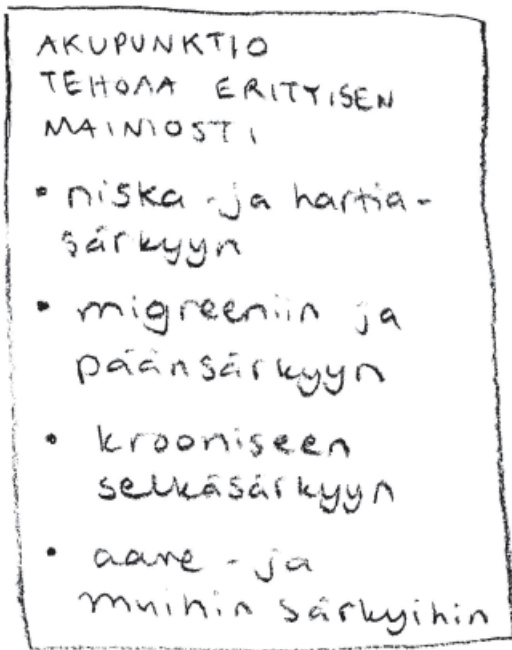 AKUPUNKTIO
TEHOAA ERITYISEN
MAINIOSTI
• niska- ja hartia-
särkyyn
• migreeniin ja
päänsärkyyn
• krooniseen
selkäsärkyyn
• aave- ja
muihin särkyihin